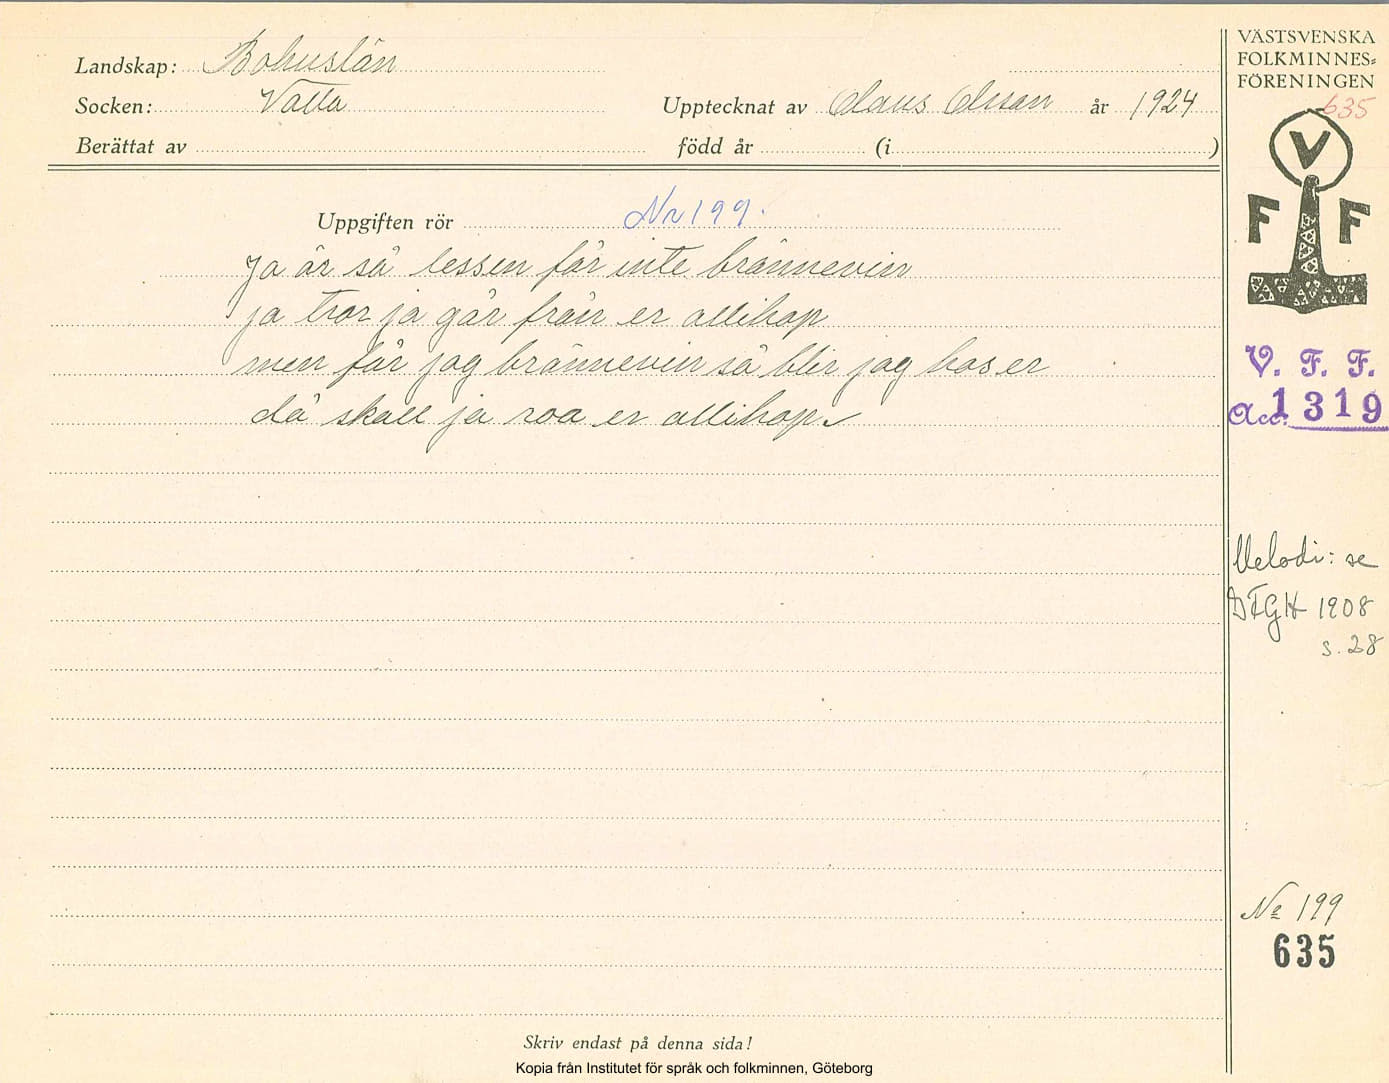 Landskap: Bohuslän
Socken: Valla
Upptecknat av Olaus Olsson år 1924
Berättat av född år (i )
Uppgiften rör Nr 199.
Ja är så lessen får inte brännevin
ja tror ja går från er allihop
men får jag brännevin så blir jag hos er
då skall ja roa er allihop.
Skriv endast på denna sida!
Kopia från Institutet för språk och folkminnen, Göteborg
VÄSTSVENSKA
FOLKMINNES-
FÖRENINGEN
635
V
F F
V. F. F.
Acc. 1319
Melodi: se
IFGH 1908
s. 28
No 199
635